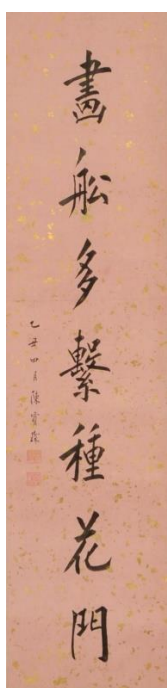 畫船多繫種花門
乙丑四月陳寶琛